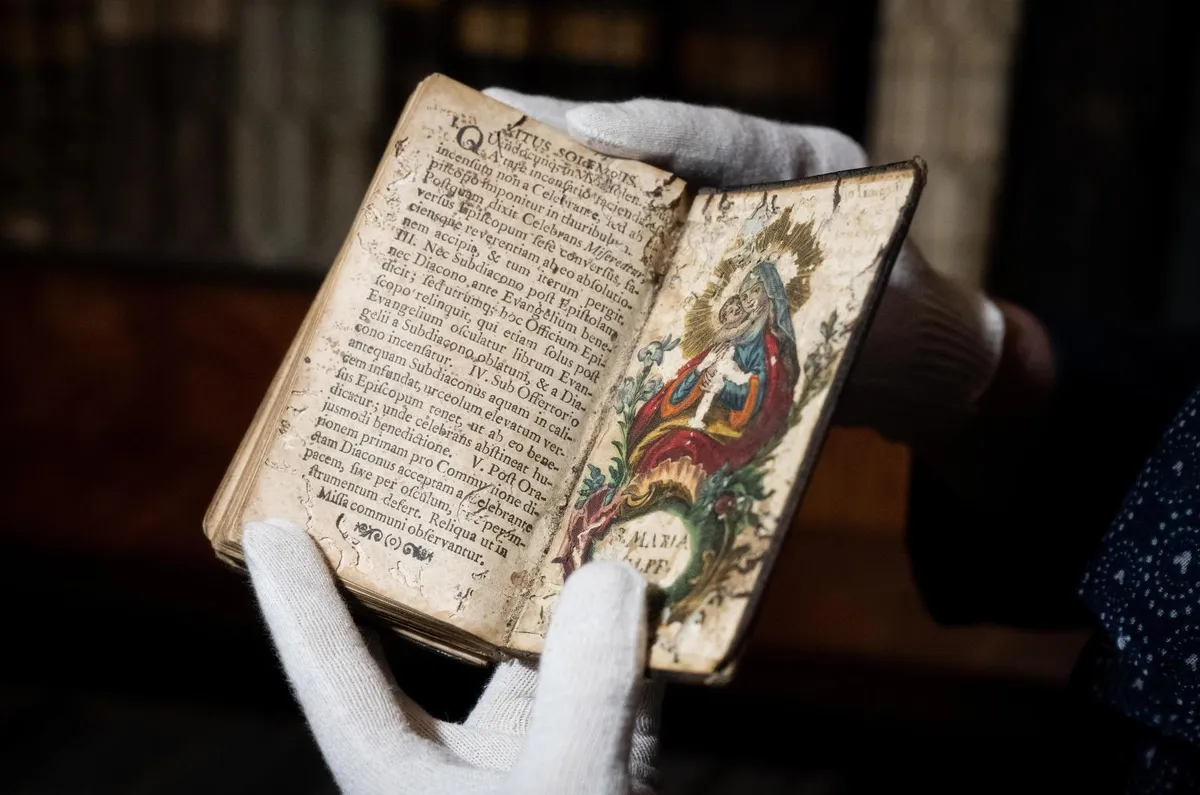 RITUS SOLEMNIS.
QUandocunq; in Missa solen.
incensum non a Celebrante, sed ab
piscopo imponitur in thuribulum.
Postquam dixit Celebrans Misereatur
versus Episcopum sese conversus, fa-
ciensque reverentiam ab eo absolutio-
nem accipit, & tum iterum pergit.
III. Nec Subdiacono post Epistolam
nec Diacono ante Evangelium bene-
dicit; sed utrumq; hoc Officium Epi-
scopo relinquit, qui etiam solus post
Evangelium osculatur librum Evan-
gelii a Subdiacono oblatum, & a Dia-
cono incensatur. IV. Sub Offertorio
antequam Subdiaconus aquam in cali-
cem infundat, urceolum elevatum ver-
sus Episcopum tenet, ut ab eo bene-
dicatur; unde celebrans abstineat hu-
jusmodi benedictione. V. Post Ora-
tionem primam pro Communione di-
ctam Diaconus acceptam a Celebrante
pacem, sive per osculum, sive per in-
strumentum defert. Reliqua ut in
Missa communi observantur.
S. MARIA